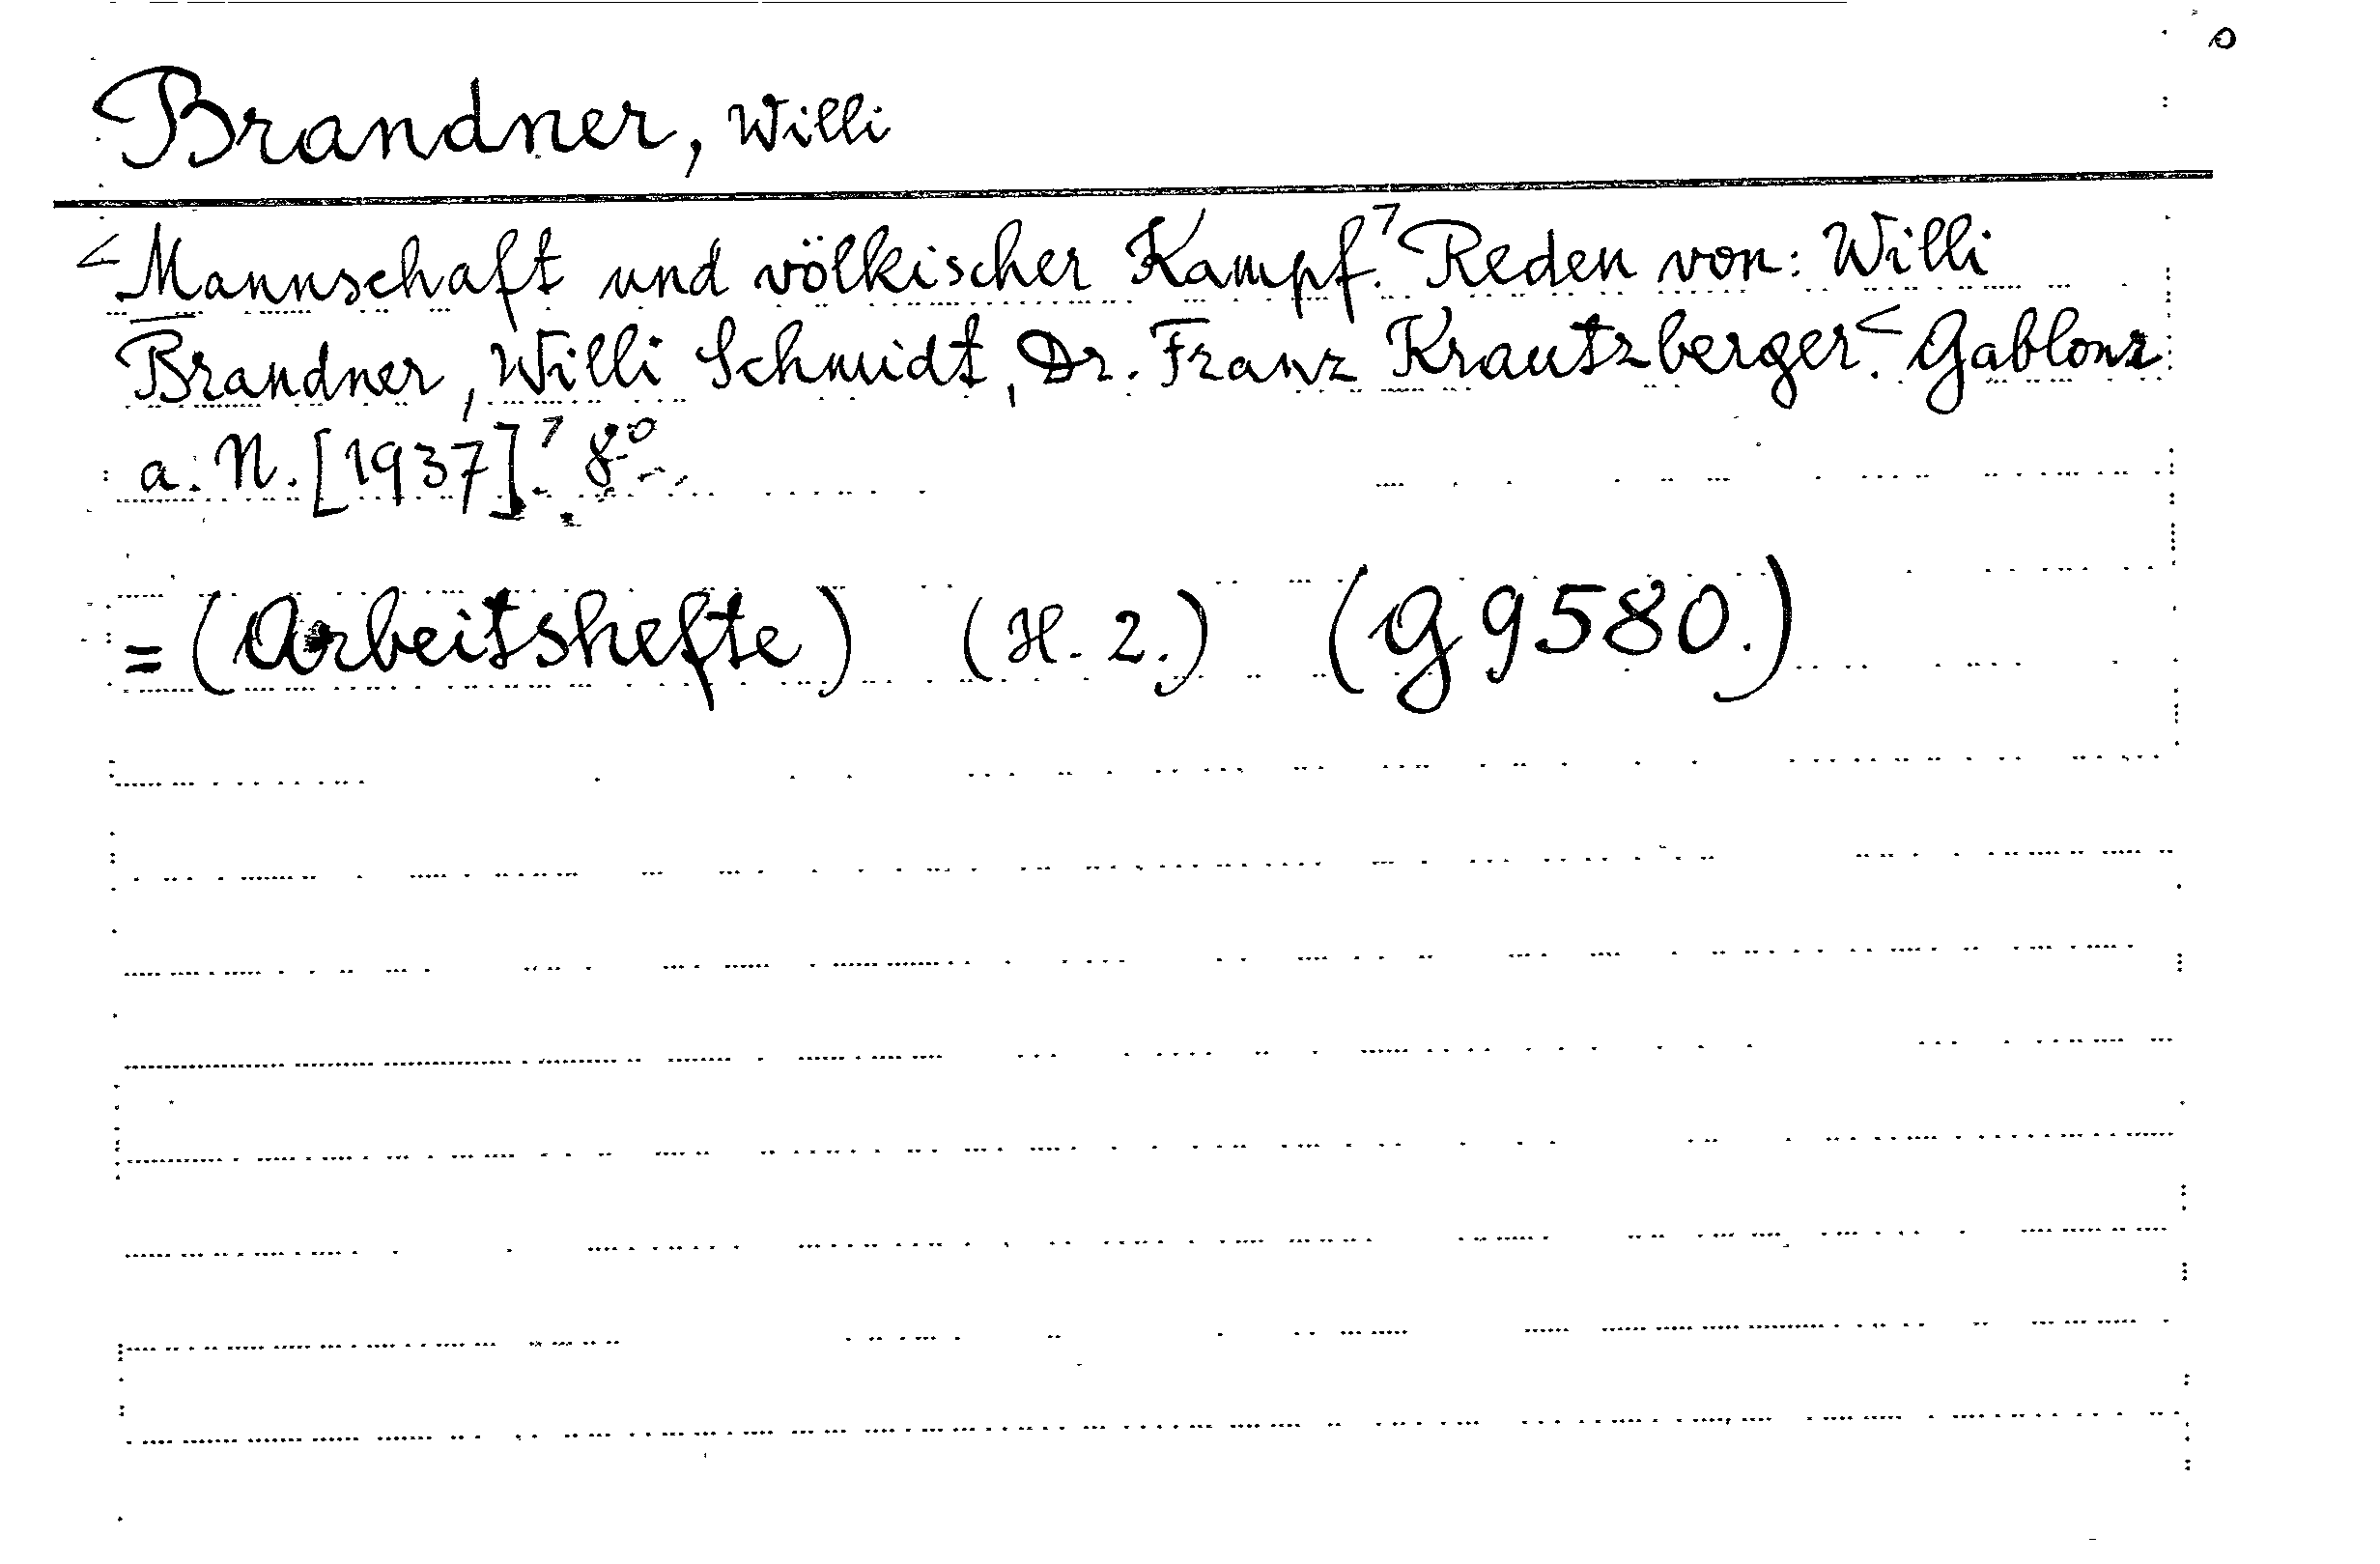 o
Brandner, Willi
<Mannschaft und völkischer Kampf.> Reden von: Willi
Brandner, Willi Schmidt, Dr. Franz Krautzberger. <Gablonz
a. N. [1937].> 8°.
= (Arbeitshefte) (H. 2.) (G 9580.)